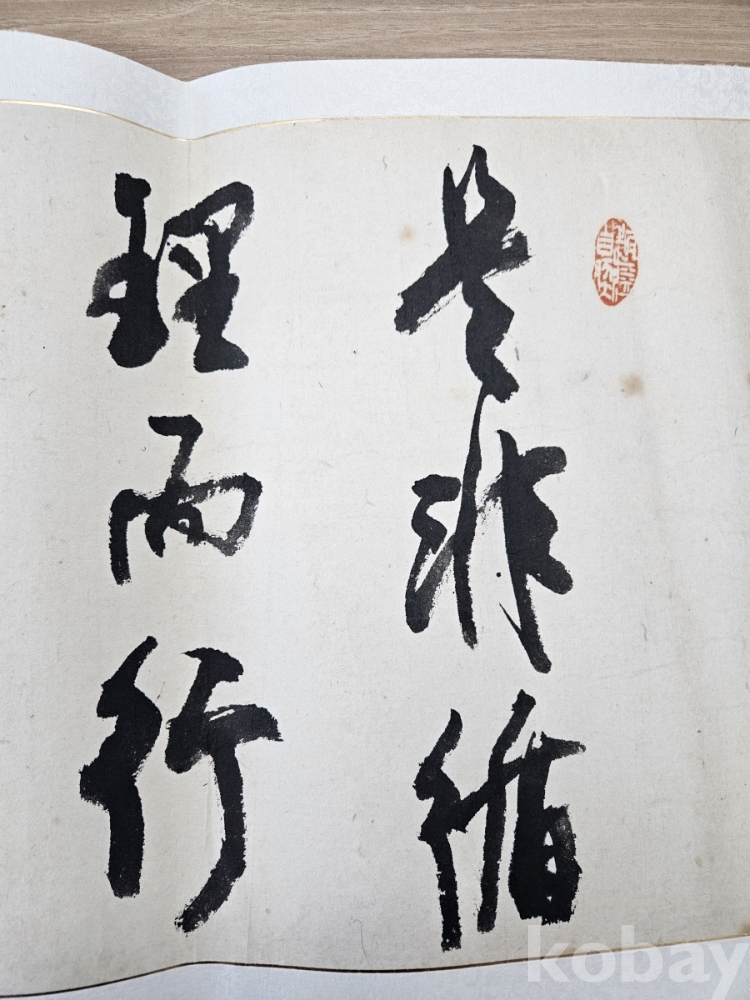 是非循
理而行
kobay